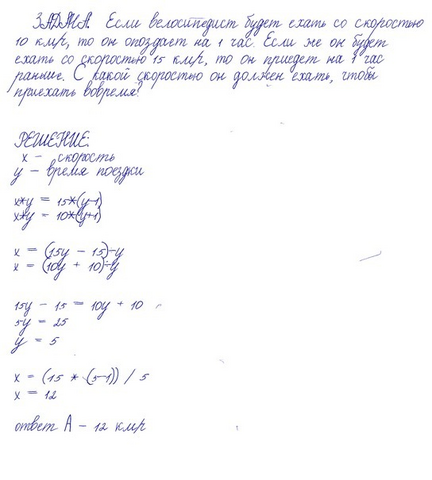 ЗАДАЧА. Если велосипедист будет ехать со скоростью
10 км/р, то он опоздает на 1 час. Если же он будет
ехать со скоростью 15 км/р, то он приедет на 1 час
раньше. С какой скоростью он должен ехать, чтобы
приехать вовремя?
РЕШЕНИЕ:
x - скорость
y - время поездки
x*y = 15*(y-1)
x*y = 10*(y+1)
x = (15y - 15)÷y
x = (10y + 10)÷y
15y - 15 = 10y + 10
5y = 25
y = 5
x = (15 * (5-1)) / 5
x = 12
ответ А - 12 км/р